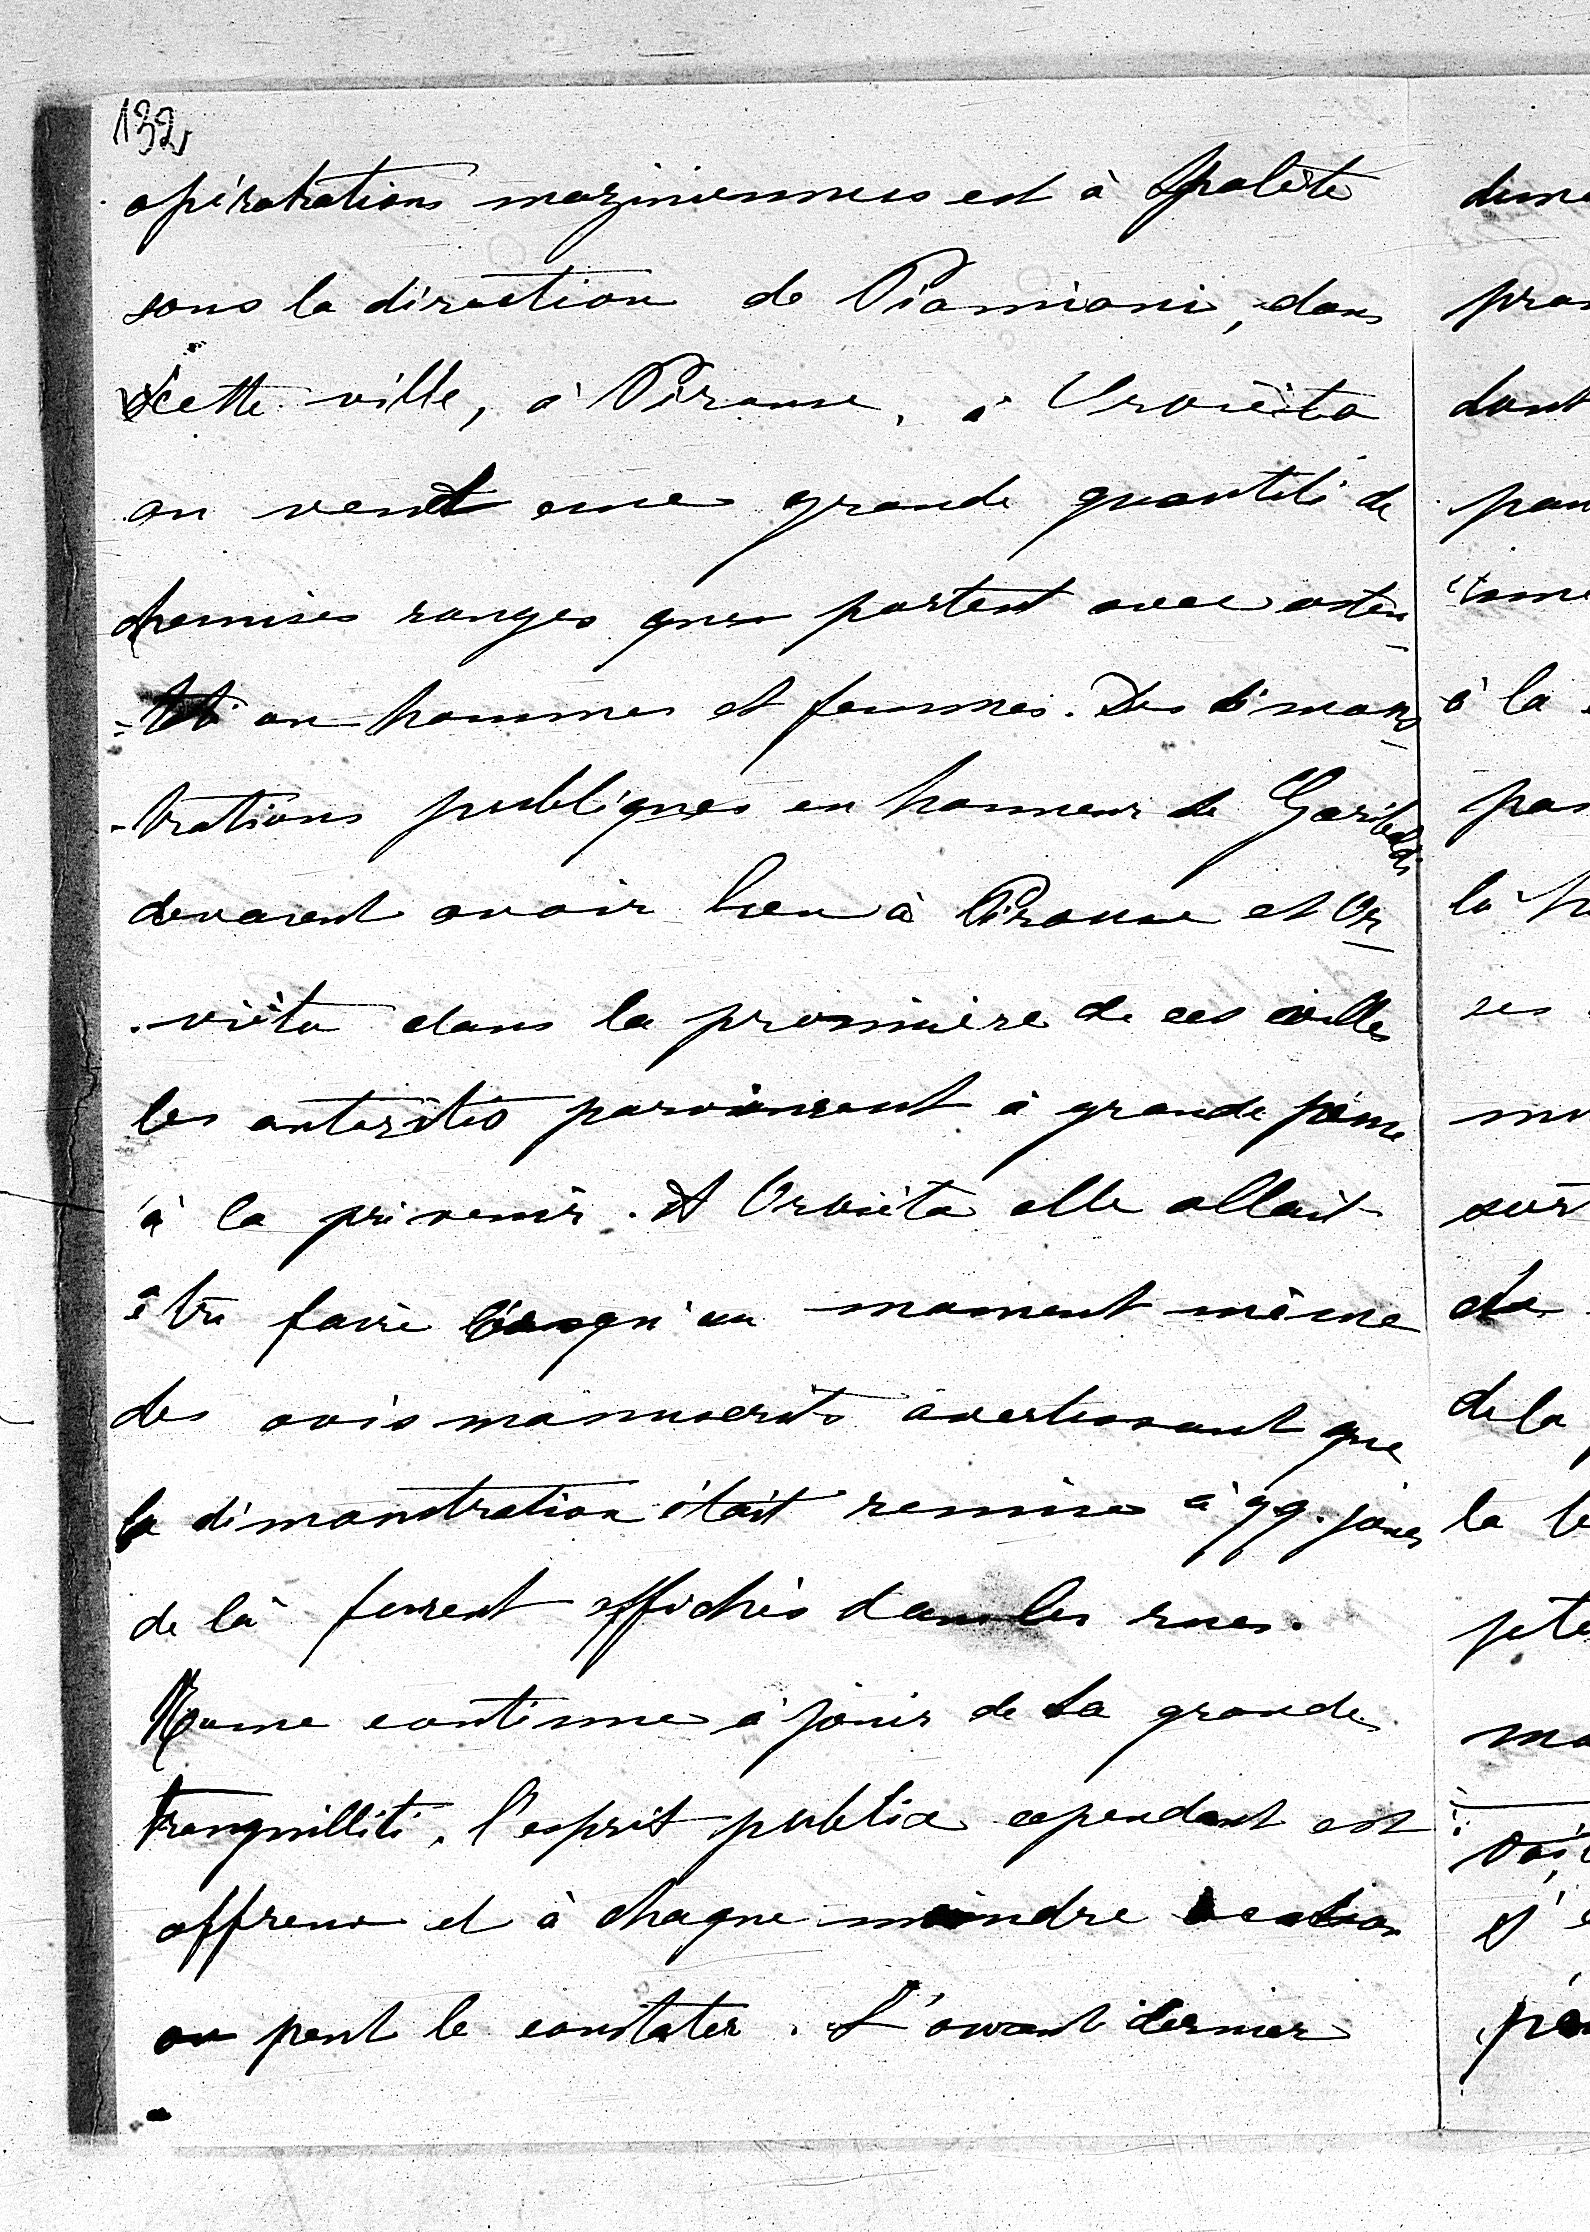 132
opératrations mazziniennes est à Spolète
sous la direction de Piamiani, dans
cette ville, à Pérouse, à Orviéto
on vend une grande quantité de
chemises rouges que portent avec osten-
-tation hommes et femmes. Des démons-
-trations publiques en honneur de Garibaldi
devaient avoir lieu à Pérouse et Or-
-viéto dans la première de ces villes
les autorités parvinrent à grande peine
à la prévenir. A Orviéto elle allait
être faire lorsqu'au moment même
des avis manuscrits avertissant que
la démonstration était remise à qq. jours
de là furent affichés dans les rues.
Rome continue à jouir de sa grande
tranquillité, l'esprit public cependant est
affreux et à chaque moindre occasion
on peut le constater. L'avant dernier
dont
à la
la
ses
sur
de
de la
la